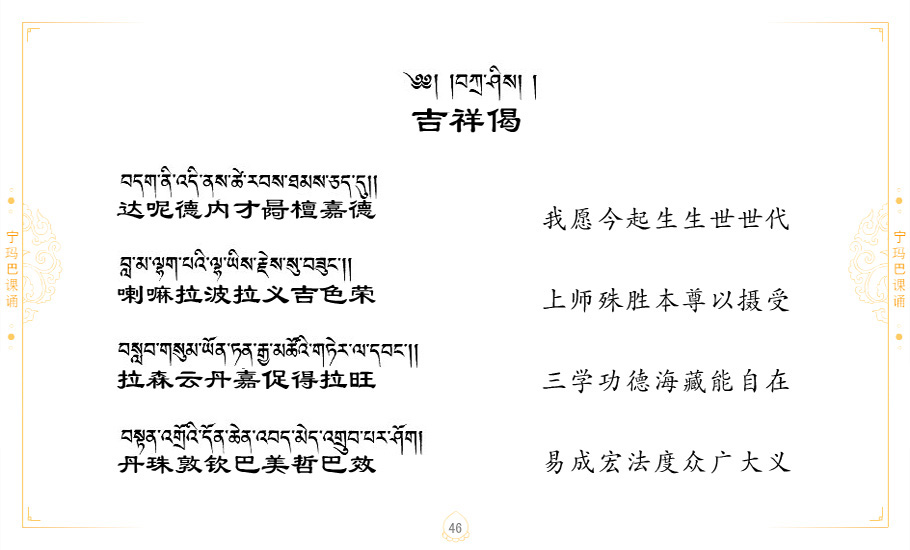 ༄༅། །བཀྲ་ཤིས། །
吉祥偈
བདག་ནི་འདི་ནས་ཚེ་རབས་ཐམས་ཅད་དུ།།
达呢德内才冔檀嘉德
我愿今起生生世世代
བླ་མ་ལྷག་པའི་ལྷ་ཡིས་རྗེས་སུ་བཟུང་།།
喇嘛拉波拉义吉色荣
上师殊胜本尊以摄受
བསླབ་གསུམ་ཡོན་ཏན་རྒྱ་མཚོའི་གཏེར་ལ་དབང་།།
拉森云丹嘉促得拉旺
三学功德海藏能自在
བསྟན་འགྲོའི་དོན་ཆེན་འབད་མེད་འགྲུབ་པར་ཤོག།
丹珠敦钦巴美哲巴效
易成宏法度众广大义
宁玛巴课诵
宁玛巴课诵
46